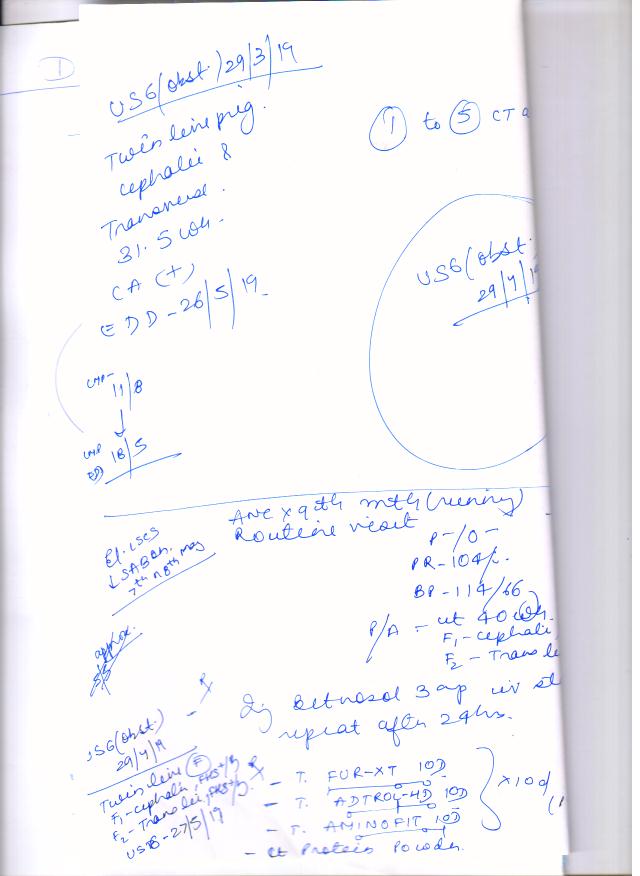 ①
USG (obst.) 29/3/19
Twin live preg.
cephalic &
Transverse.
31.5 wk.
CA (+)
EDD - 26/5/19
① to ⑤ CT
USG (obst.
29/4/19
LMP -
11/8
↓
18/5
ANC x 9th mth (running)
Routine visit
El. LSCS
↓ SAB
7th n 8th may
approx.
P - / O -
PR - 104/
BP - 114/66
P/A - ut 40 wk.
F1 - cephalic
F2 - Trans
Rx
Inj Betnosol 3 amp iv
repeat after 24 hrs.
USG (obst.)
29/4/19
Twin live (F)
F1 - cephalic, FHS +
F2 - Trans lie, FHS +
USG - 27/5/19
Rx
- T. FUR-XT 10D
- T. ADTROL-HD 10D
- T. AMINOFIT 10D
x 10d
- ct Protein Powder.